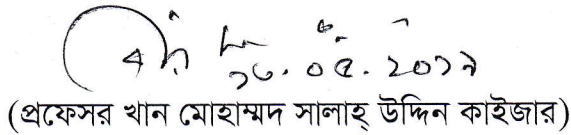 ১৬.০৫.২০১৯
(প্রফেসর খান মোহাম্মদ সালাহ্ উদ্দিন কাইজার)